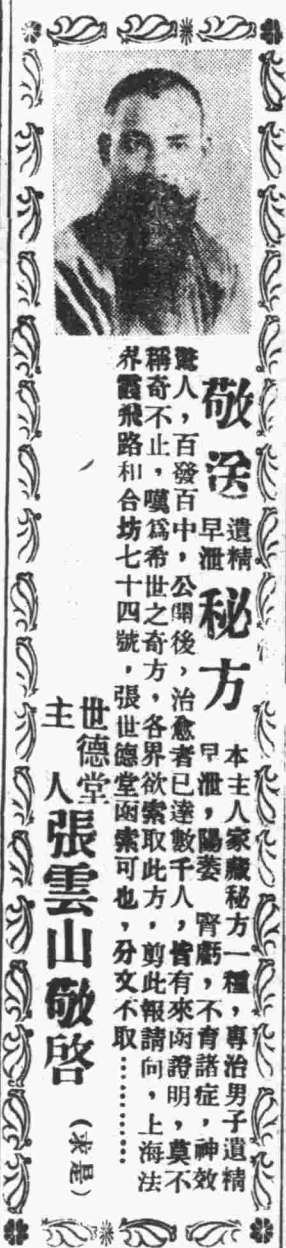 敬送遺精早泄秘方
本主人家藏秘方一種，專治男子遺精
早泄，陽萎 腎虧，不育諸症，神效
驚人，百發百中，公開後，治愈者已達數千人，皆有來函證明，莫不
稱奇不止，嘆爲希世之奇方，各界欲索取此方，剪此報請向，上海法
界霞飛路和合坊七十四號，張世德堂函索可也，分文不取…………
世德堂
主人
張雲山敬啓
（求是）